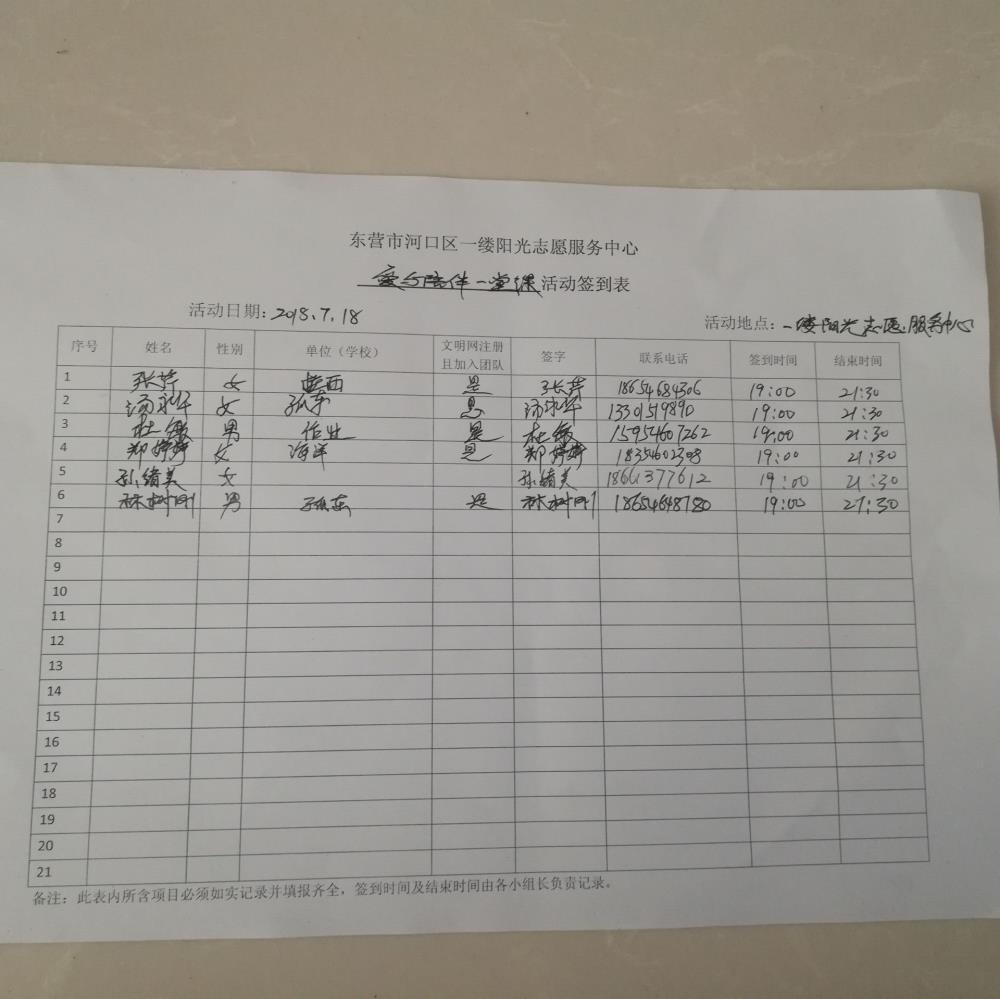 东营市河口区一缕阳光志愿服务中心
爱与陪伴一堂课活动签到表
活动日期:2018.7.18 活动地点:一缕阳光志愿服务中心
序号 姓名 性别 单位(学校) 文明网注册且加入团队 签字 联系电话 签到时间 结束时间
1 张 女 西 是 张 18654684306 19:00 21:30
2 汤 女 孤东 是 汤 13301519890 19:00 21:30
3 杜敏 男 作业 是 杜敏 15954607262 19:00 21:30
4 郑婷婷 女 海洋 是 郑婷婷 19:00 21:30
5 孙绪美 女 孙绪美 18661377612 19:00 21:30
6 林树刚 男 孤东 是 林树刚 18654648780 19:00 21:30
7
8
9
10
11
12
13
14
15
16
17
18
19
20
21
备注:此表内所含项目必须如实记录并填报齐全,签到时间及结束时间由各小组长负责记录。